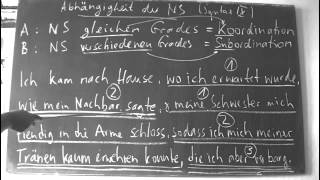 Abhängigkeit des NS (Syntax)
A: NS gleichen Grades = Koordination
B: NS verschiedenen Grades = Subordination
1
Ich kam nach Hause, wo ich erwartet wurde,
2 1
wie mein Nachbar sagte, & meine Schwester mich
2
freudig in die Arme schloss, sodass ich mich meiner
3
Tränen kaum erwehren konnte, die ich aber verbarg.